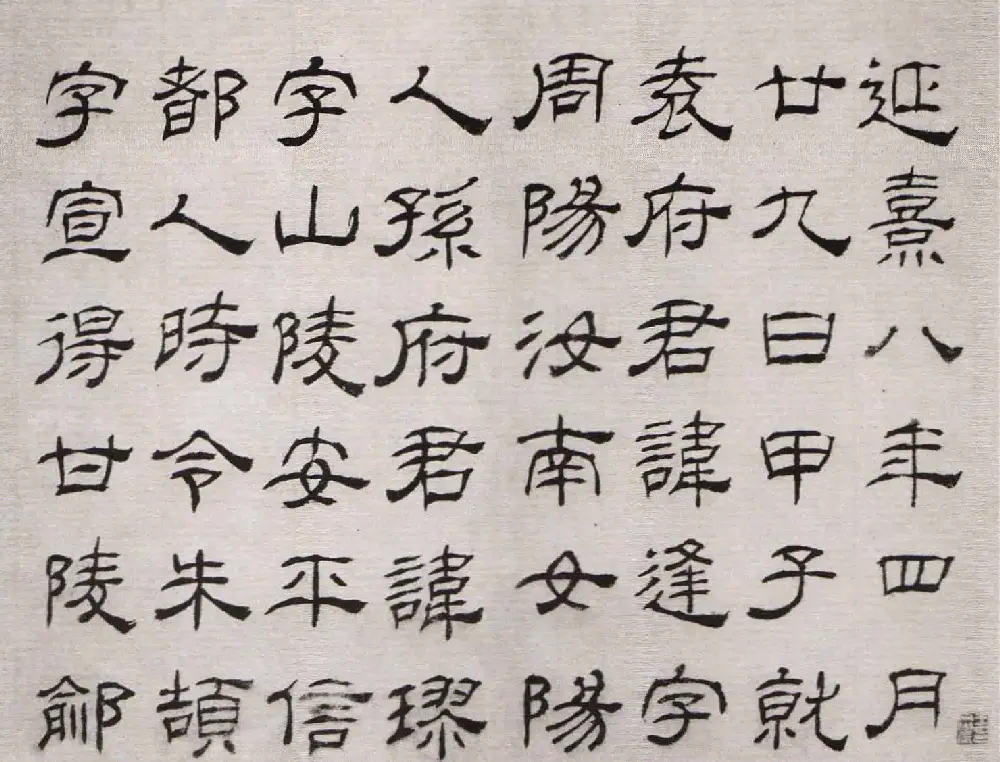 延熹八年四月
廿九日甲子就
袁府君諱逢字
周陽汝南女陽
人孫府君諱璆
字山陵安平信
都人時令朱頡
字宣得甘陵鄃